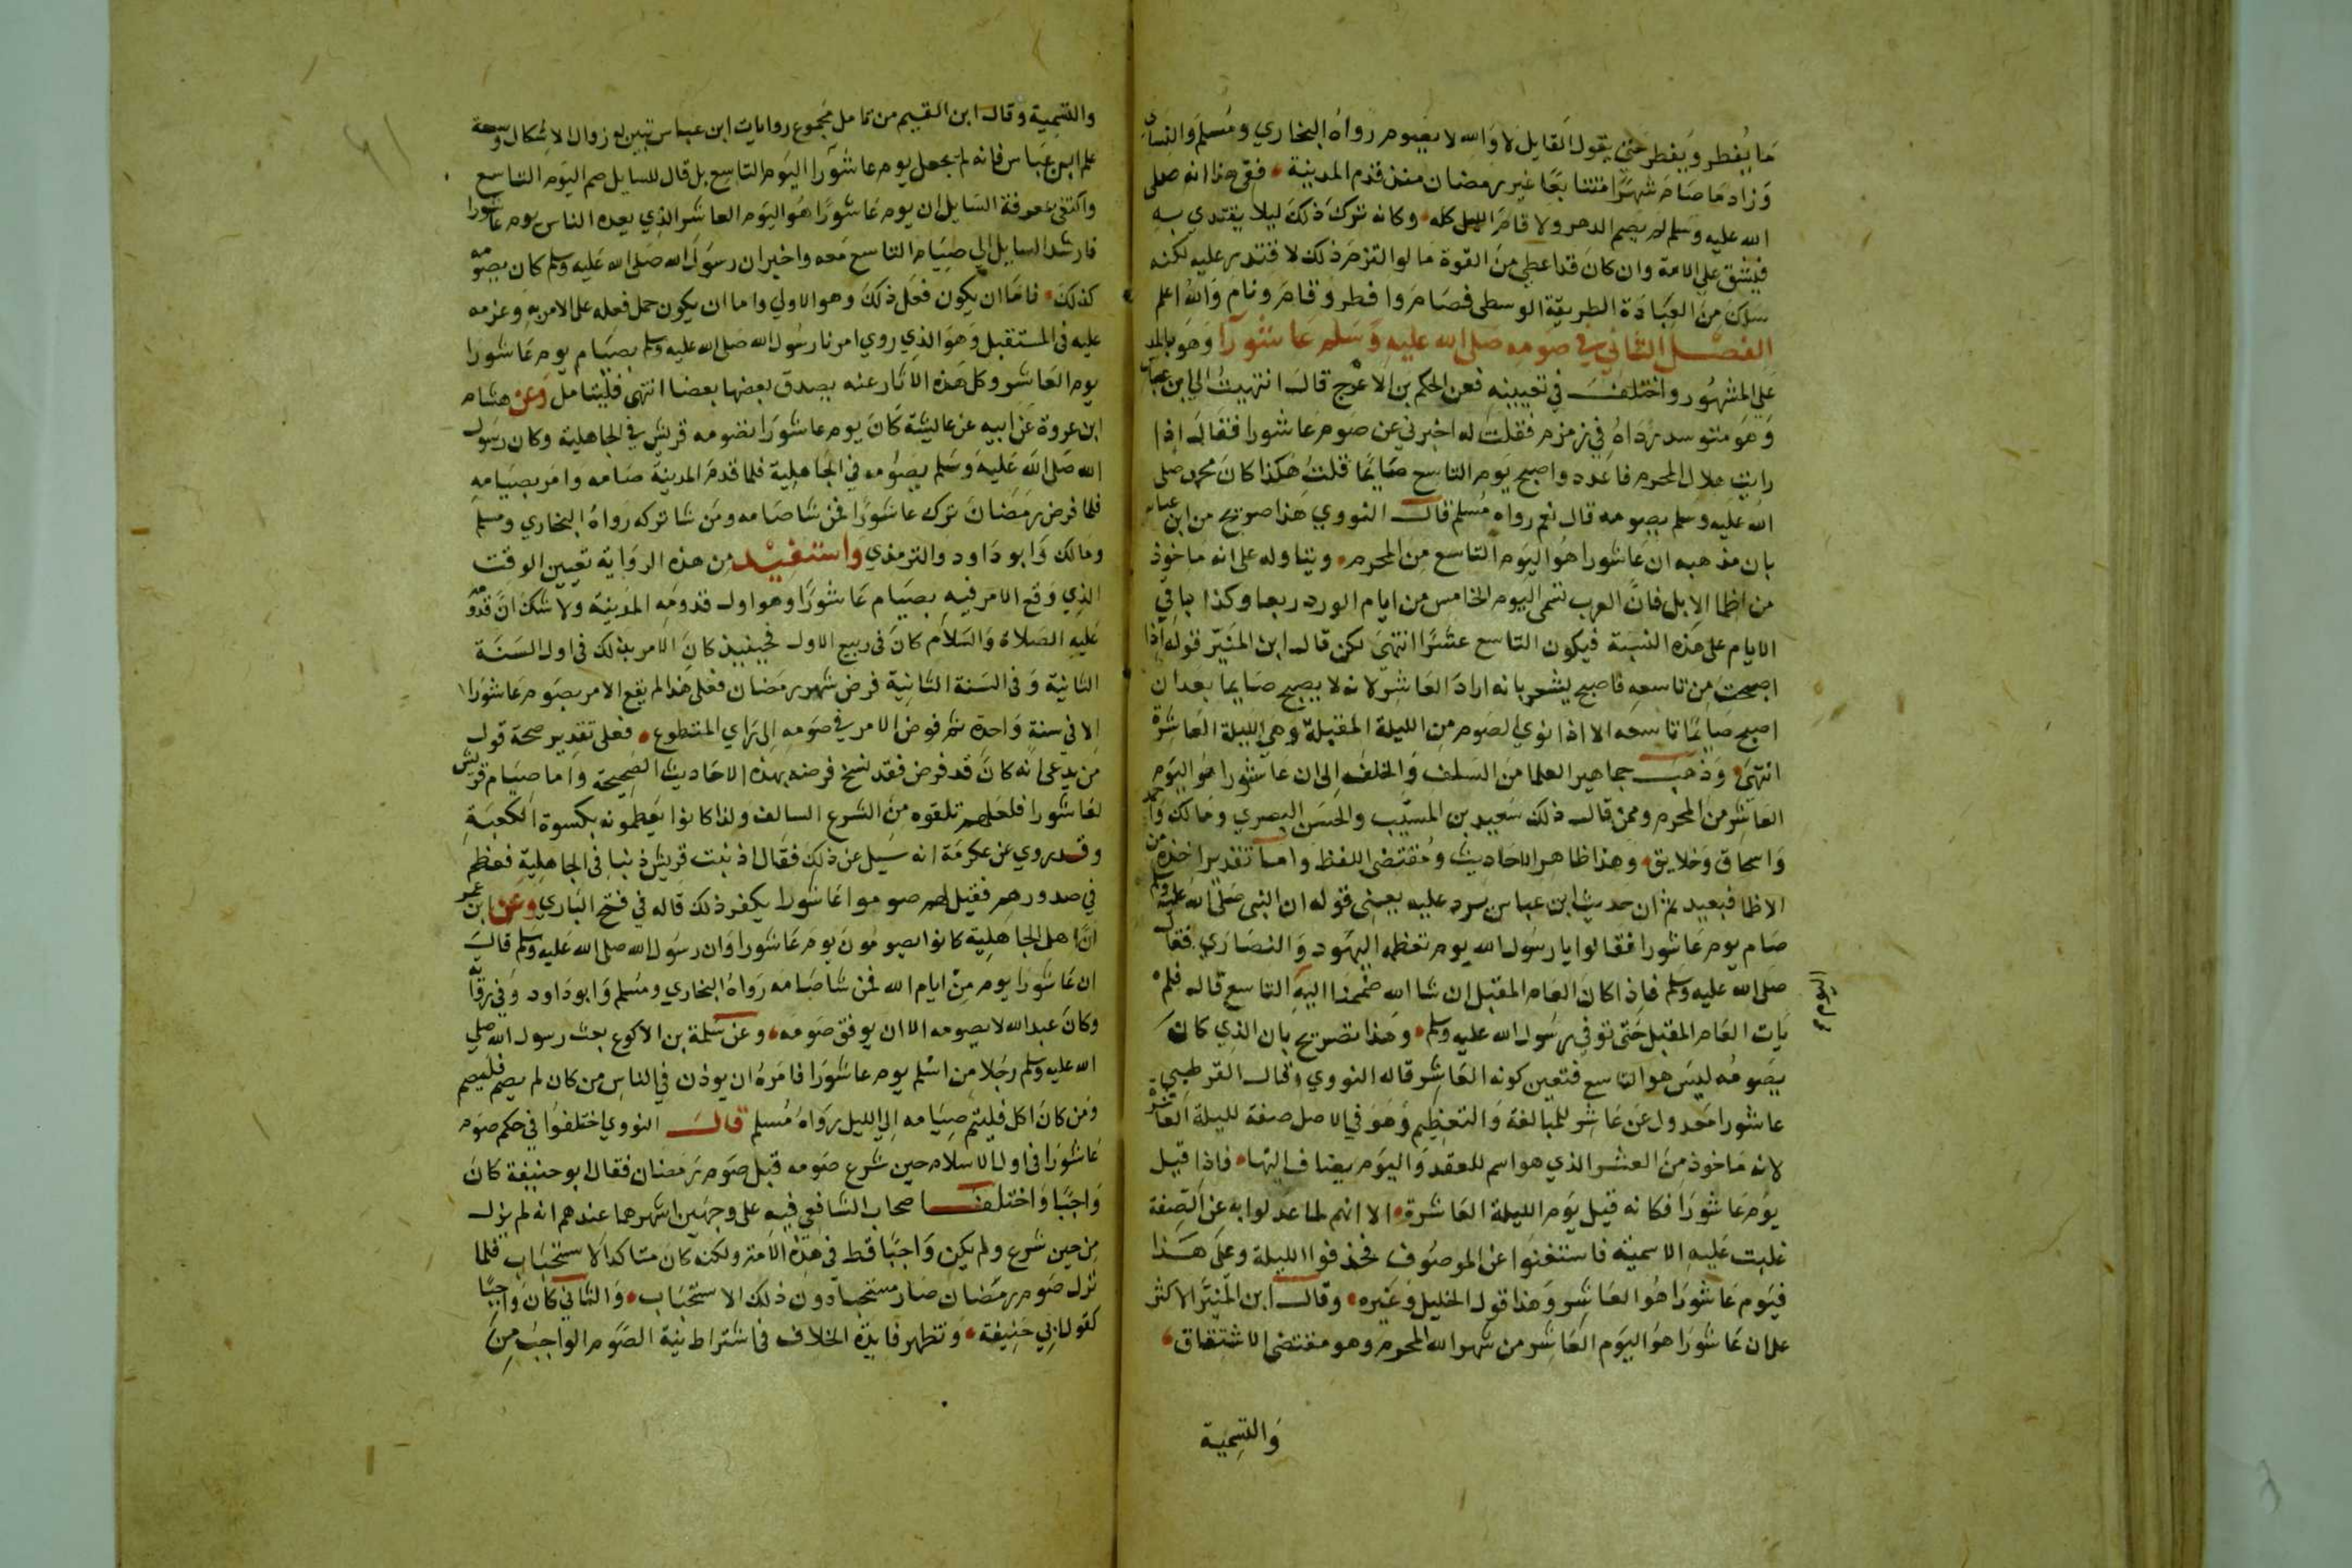 ما يفطر ويفطر حتى يقول القايل لا والله لا يصوم رواه البخاري ومسلم والنساي
وزاد ما صام شهرا متتابعا غير رمضان منذ قدم المدينة ففي هذا انه صلى
الله عليه وسلم لم يصم الدهر ولا قام الليل كله وكانه ترك ذلك ليلا يقتدي به
فيشق على الامة وان كان قد اعطي من القوة ما لو التزم ذلك لاقتدر عليه لكنه
سلك من العبادة الطريقة الوسطى فصام وافطر وقام ونام والله اعلم
الفصل الثاني في صومه صلى الله عليه وسلم عاشورا وهو بالمد
على المشهور واختلف في تعيينه فعن الحكم بن الاعرج قال انتهيت الى ابن عباس
وهو متوسد رداه في زمزم فقلت له اخبرني عن صوم عاشورا فقال اذا
رايت هلال المحرم فاعدد واصبح يوم التاسع صايما قلت هكذا كان محمد صلى
الله عليه وسلم يصومه قال نعم رواه مسلم قال النووي هذا صريح من ابن عباس
بان مذهبه ان عاشورا هو اليوم التاسع من المحرم ويتاوله على انه ماخوذ
من اظما الابل فان العرب تسمى اليوم الخامس من ايام الورد ربعا وكذا باقي
الايام على هذه النسبة فيكون التاسع عشرا انتهى لكن قال ابن المنير قوله اذا
اصبحت من تاسعه فاصبح يشعر بانه اراد العاشر لانه لا يصبح صايما بعد ان
اصبح صايما تاسعه الا اذا نوى الصوم من الليلة المقبلة وهي الليلة العاشرة
انتهى وذهب جماهير العلما من السلف والخلف الى ان عاشورا هو اليوم
العاشر من المحرم وممن قال ذلك سعيد بن المسيب والحسن البصري ومالك واحمد
واسحاق وخلايق وهذا ظاهر الاحاديث ومقتضى اللفظ واما تقدير اخذه من
الاظما فبعيد ثم ان حديث ابن عباس يرد عليه يعني قوله ان النبى صلى الله عليه وسلم
صام يوم عاشورا فقالوا يا رسول الله يوم تعظمه اليهود والنصارى فقال
صلى الله عليه وسلم فاذا كان العام المقبل ان شا الله صمنا اليوم التاسع قال فلم
يات العام المقبل حتى توفي رسول الله عليه وسلم وهذا تصريح بان الذي كان
يصومه ليس هو التاسع فتعين كونه العاشر قاله النووي وقال القرطبي
عاشورا معدول عن عاشر للمبالغة والتعظيم وهو في الاصل صفة لليلة العاشرة
لانه ماخوذ من العشر الذي هو اسم للعقد واليوم يضاف اليها فاذا قيل
يوم عاشورا فكانه قيل يوم الليلة العاشرة الا انهم لما عدلوا به عن الصفة
غلبت عليه الاسمية فاستغنوا عن الموصوف فحذفوا الليلة وعلى هذا
فيوم عاشورا هو العاشر وهذا قول الخليل وغيره وقال ابن المنير الاكثر
على ان عاشورا هو اليوم العاشر من شهر الله المحرم وهو مقتضى الاشتقاق
والتسمية
والتسمية وقال ابن القيم من تامل مجموع روايات ابن عباس تبين له زوال الاشكال وسعة
علم ابن عباس فانه لم يجعل يوم عاشورا اليوم التاسع بل قال للسايل صم اليوم التاسع
واكتفى بمعرفة السايل ان يوم عاشورا هو اليوم العاشر الذي يعده الناس يوم عاشورا
فارشد السايل الى صيام التاسع معه واخبر ان رسول الله صلى الله عليه وسلم كان يصومه
كذلك فاما ان يكون فعل ذلك وهو الاولى واما ان يكون حمل فعله على الامر به وعزمه
عليه في المستقبل وهو الذي روي امرنا رسول الله صلى الله عليه وسلم بصيام يوم عاشورا
يوم العاشر وكل هذه الاثار عنه يصدق بعضها بعضا انتهى فليتامل وعن هشام
ابن عروة عن ابيه عن عايشة كان يوم عاشورا تصومه قريش في الجاهلية وكان رسول
الله صلى الله عليه وسلم يصومه في الجاهلية فلما قدم المدينة صامه وامر بصيامه
فلما فرض رمضان ترك عاشورا فمن شا صامه ومن شا تركه رواه البخاري ومسلم
ومالك وابو داود والترمذي واستفيد من هذه الرواية تعيين الوقت
الذي وقع الامر فيه بصيام عاشورا وهو اول قدومه المدينة ولا شك ان قدومه
عليه الصلاة والسلام كان في ربيع الاول فحينيذ كان الامر بذلك في اول السنة
الثانية وفي السنة الثانية فرض شهر رمضان فعلى هذا لم يقع الامر بصوم عاشورا
الا في سنة واحدة ثم فوض الامر في صومه الى راي المتطوع فعلى تقدير صحة قول
من يدعى انه كان قد فرض فقد نسخ فرضه بهذه الاحاديث الصحيحة واما صيام قريش
لعاشورا فلعلهم تلقوه من الشرع السالف ولذا كانوا يعظمونه بكسوة الكعبة
وقد روي عن عكرمة انه سيل عن ذلك فقال اذنبت قريش ذنبا في الجاهلية فعظم
في صدورهم فقيل لهم صوموا عاشورا يكفر ذلك قاله في فتح الباري وعن ابن عمر
ان اهل الجاهلية كانوا يصومون يوم عاشورا وان رسول الله صلى الله عليه وسلم قال
ان عاشورا يوم من ايام الله فمن شا صامه رواه البخاري ومسلم وابو داود وفي رواية
وكان عبد الله لا يصومه الا ان يوافق صومه وعن سلمة بن الاكوع بعث رسول الله صلى
الله عليه وسلم رجلا من اسلم يوم عاشورا فامره ان يوذن في الناس من كان لم يصم فليصم
ومن كان اكل فليتم صيامه الى الليل رواه مسلم قال النووي اختلفوا في حكم صوم
عاشورا في اول الاسلام حين شرع صومه قبل صوم رمضان فقال ابو حنيفة كان
واجبا واختلف اصحاب الشافعي فيه على وجهين اشهرهما عندهم انه لم يزل
من حين شرع ولم يكن واجبا قط في هذه الامة ولكنه كان متاكد الاستحباب فلما
نزل صوم رمضان صار مستحبا دون ذلك الاستحباب والثاني كان واجبا
كقول ابي حنيفة وتظهر فايدة الخلاف في اشتراط نية الصوم الواجب من